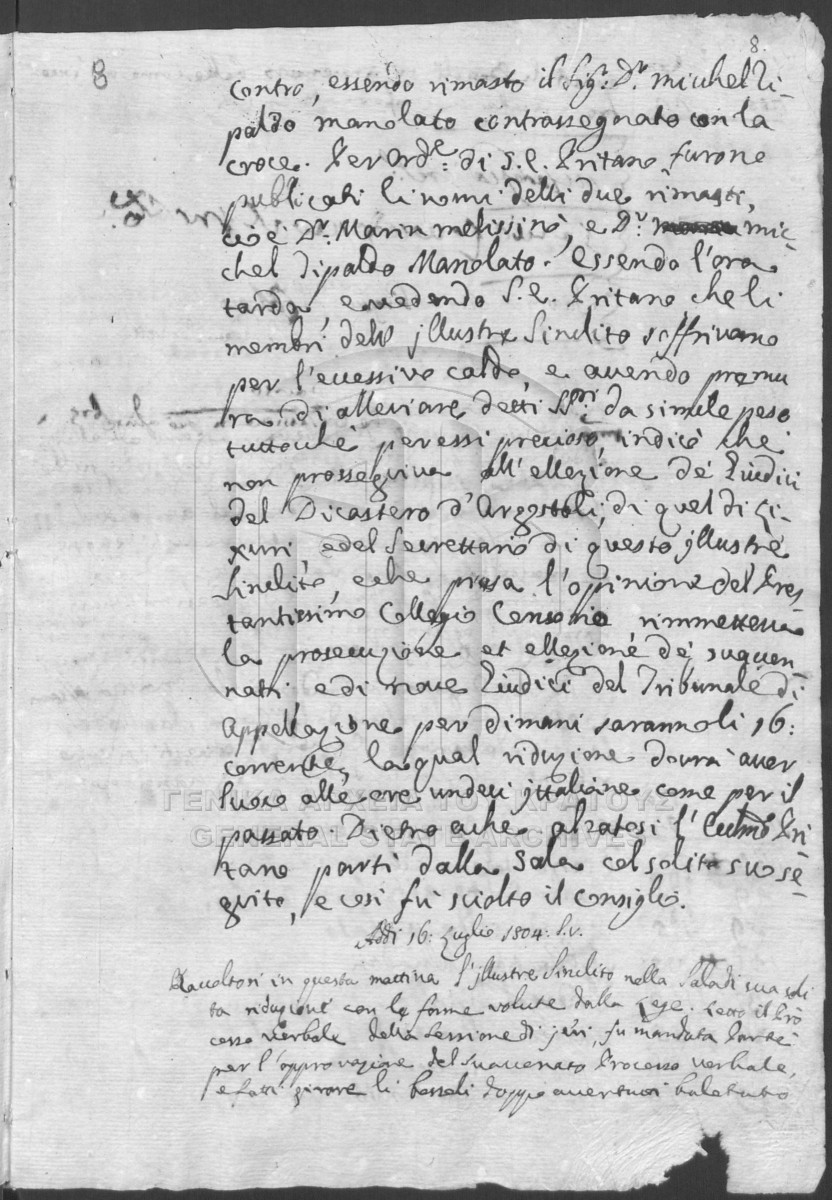 8.
8
contro, essendo rimasto il Sigr: Dr: michel Ti-
paldo manolato contrassegnato con la
croce. Per Orde: di S. E. Pritano furono
publicati li nomi delli due rimasti,
cioè Dr: Marin melissinò, e Dr: mic-
chel dipaldo Manolato. Essendo l'ora
tarda, e vedendo S. E. Pritano che li
membri dell' jllustre Sinclito soffrivano
per l'eccessivo caldo, e avendo premu
ra di alleviare detti SSri: da simile peso
tuttochè per essi precioso, indicò che
non prosseguiva all'ellezione de Giudici
del Dicastero d'Argostoli, di quel di Li-
xuri e del Secrettario di questo jllustre
Sinclito, e che presa l'opinione del Pres
tantissimo Collegio Censorio rimmetteva
la prosecuzione et ellezione de suaccen-
nati e di nove Giudici del Tribunale di
Appellazione per dimani sarannoli 16:
corrente, la qual riduzione dovrà aver
luoco alle ore undeci jttaliane come per il
passato. Dietro a che alzatosi l' Pri
tano partì dalla sala col solito suo se-
guito, e così fù sciolto il consiglio.
Addi 16: Luglio 1804: S.V.
Raccoltosi in questa mattina l'jllustre Sinclito nella Sala di sua soli
ta riduzione con le forme volute dalla Lege. Letto il Prò
cesso verbale della Sessione di jeri, fu mandata Parte
per l'approvazione del suaccenato Processo verbale,
e fatti girare li bossoli doppo avertiti
ΓΕΝΙΚΑ ΑΡΧΕΙΑ ΤΟΥ ΚΡΑΤΟΥΣ
GENERAL STATE ARCHIVES